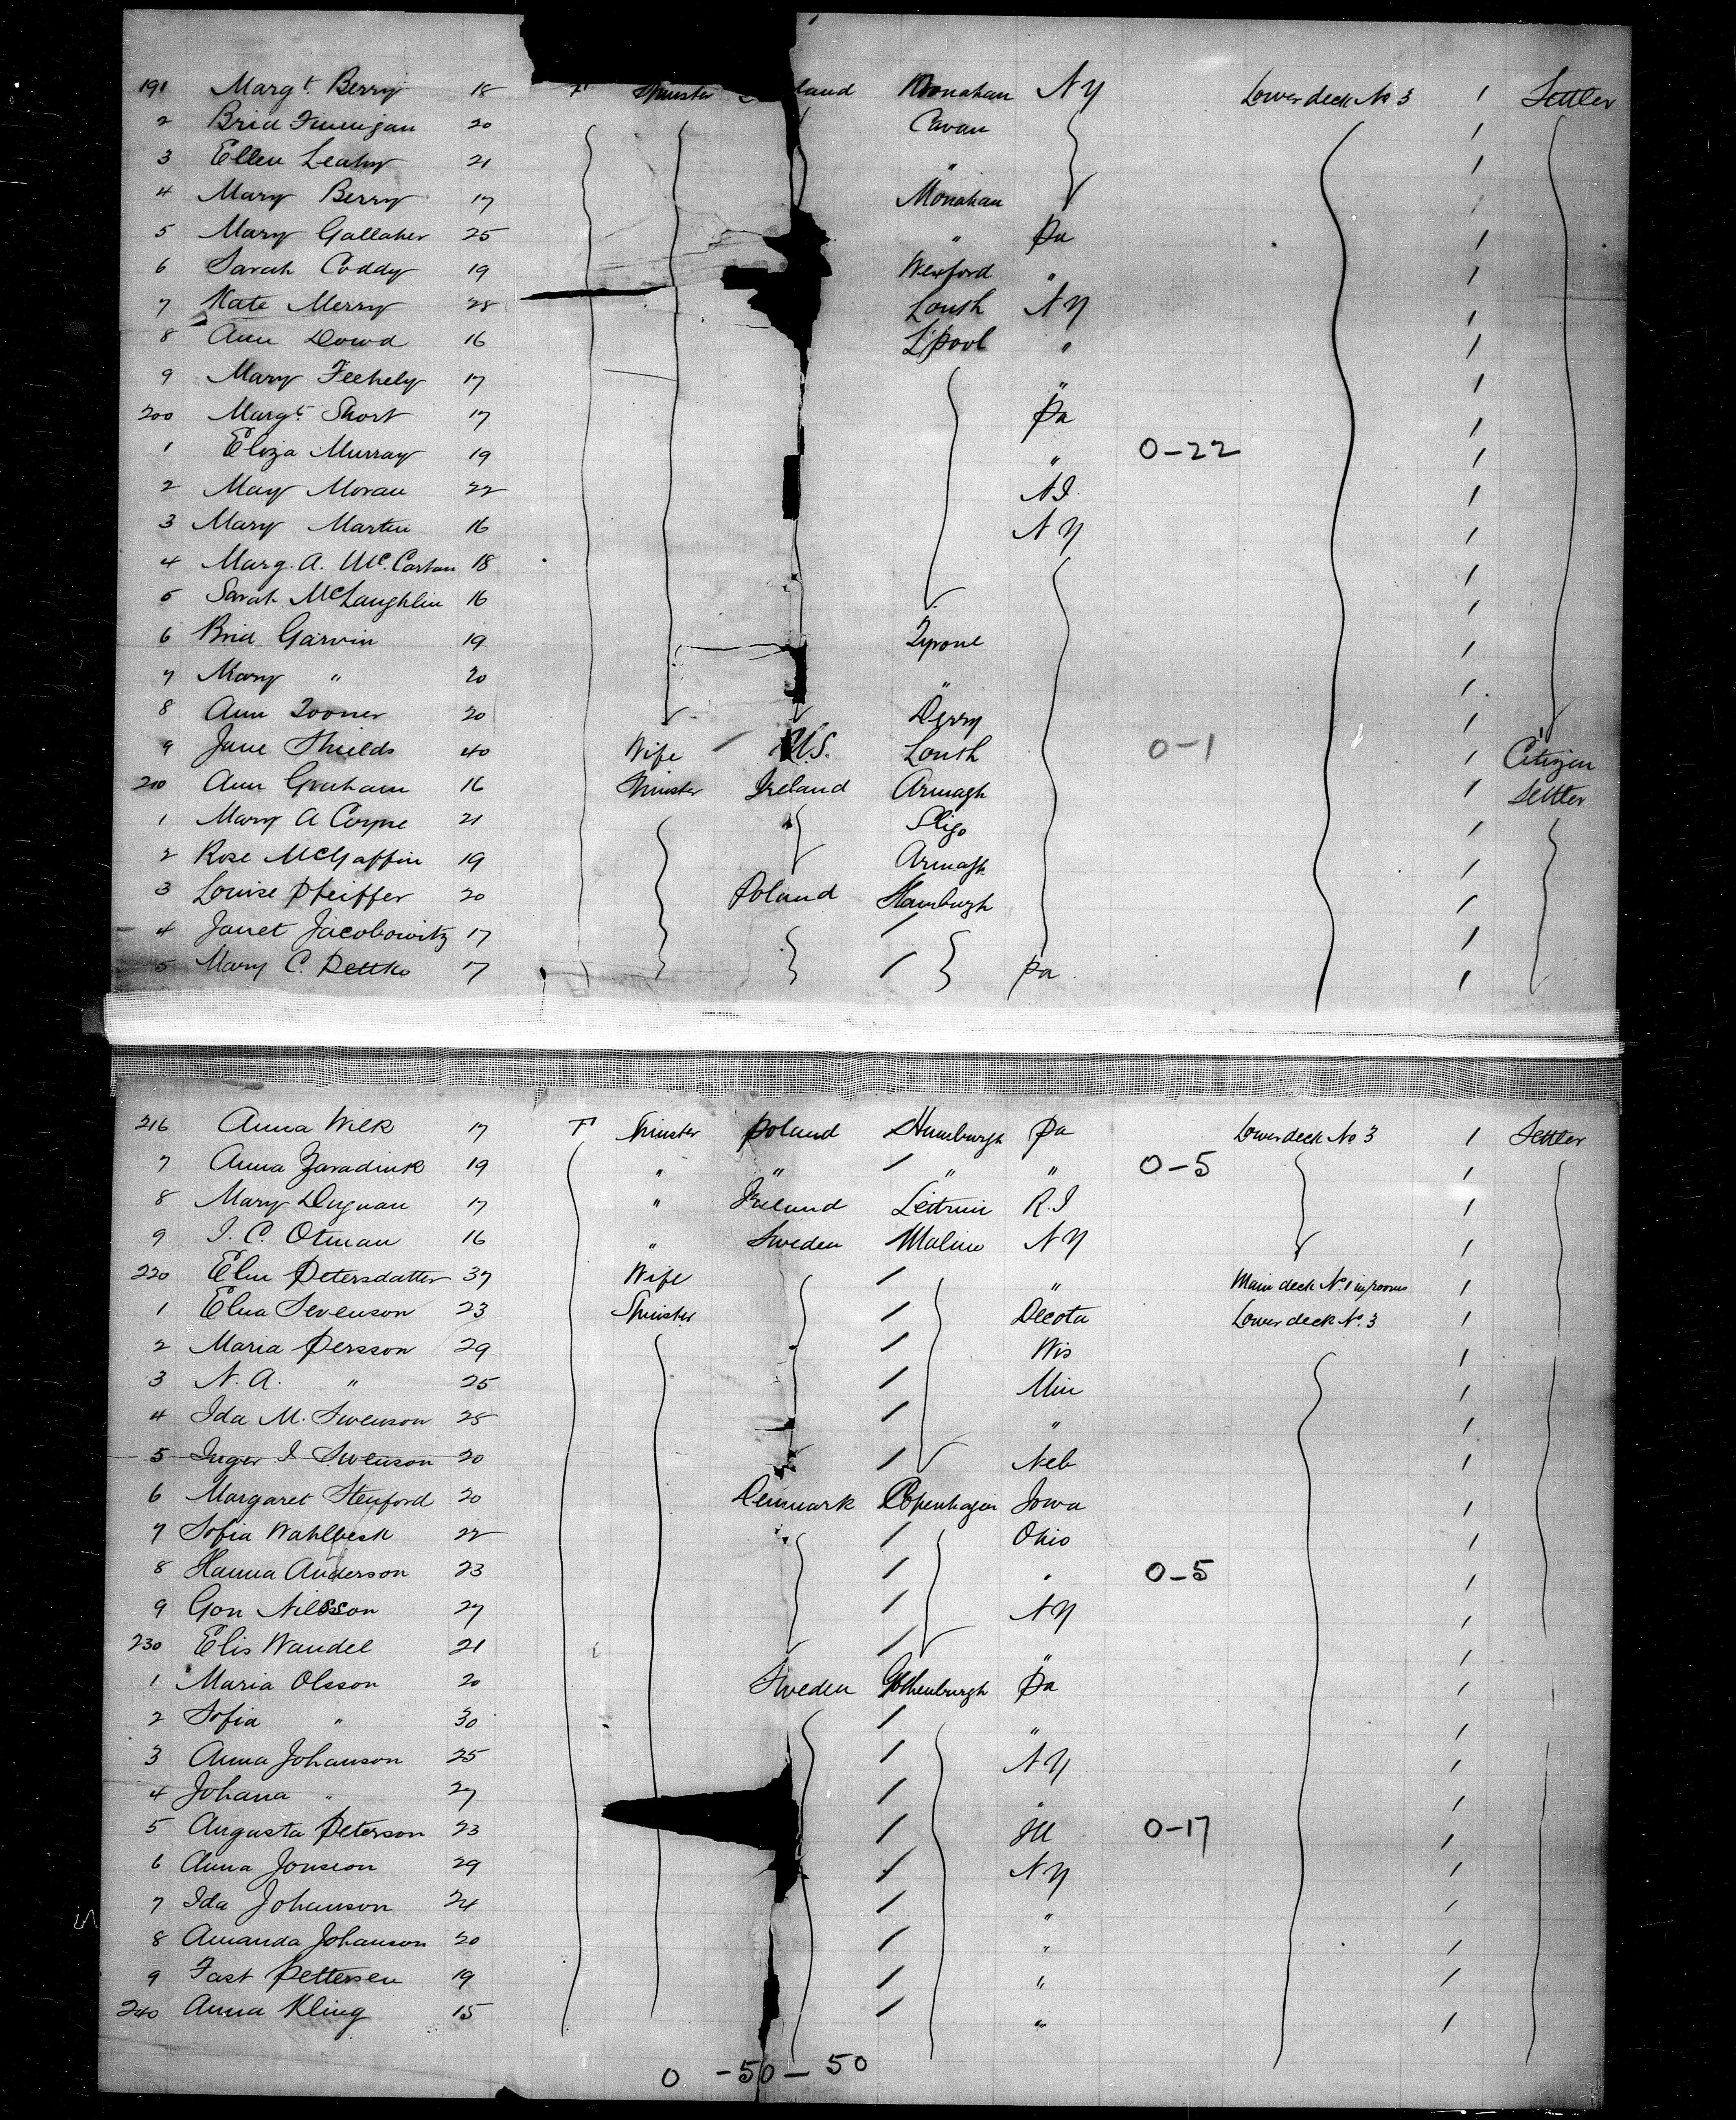 191 Margt. Berry 18 F Spinster land Monahan N Y Lower deck No 3 / Settler
2 Brid Finnigan 20 Cavan /
3 Ellen Leahy 21 " /
4 Mary Berry 17 Monahan /
5 Mary Gallaher 25 " Pa /
6 Sarah Coddy 19 Wexford " /
7 Kate Merry 28 Louth N Y /
8 Ann Dowd 16 L'pool " /
9 Mary Feehely 17 " /
200 Margt. Short 17 Pa /
1 Eliza Murray 19 " 0-22 /
2 Mary Moran 22 N J /
3 Mary Martin 16 N Y /
4 Marg. A. McCartan 18 /
5 Sarah McLaughlin 16 /
6 Brid Garvin 19 Tyrone /
7 Mary " 20 " /
8 Ann Tooner 20 Derry /
9 Jane Shields 40 Wife / U.S. Louth 0-1 / Citizen
210 Ann Graham 16 Spinster Ireland Armagh / Settler
1 Mary A Coyne 21 Sligo /
2 Rose McGaffin 19 Armagh /
3 Louise Pfeiffer 20 Poland Hamburgh /
4 Janet Jacobowitz 17 / /
5 Mary C. Pettko 17 / Pa /
216 Anna Wilk 17 F Spinster Poland Hamburgh Pa Lower deck No 3 / Settler
7 Anna Zaradink 19 " " / " " 0-5 /
8 Mary Dugnan 17 " Ireland Leitrim R.I /
9 I. C. Otman 16 " Sweden Malmo N Y /
220 Elin Petersdatter 37 Wife / " Main deck No. 1 in rooms /
1 Elna Sevenson 23 Spinster / Decota Lower deck No. 3 /
2 Maria Persson 29 / Wis /
3 N. A. " 25 / Min /
4 Ida M. Swenson 28 / " /
5 Inger I Swenson 20 / Neb /
6 Margaret Stenford 20 Denmark Copenhagen Iowa /
7 Sofia Wahlbeck 22 / Ohio /
8 Hanna Anderson 23 / " 0-5 /
9 Gon Nilsson 27 / N Y /
230 Elis Wandel 21 / " /
1 Maria Olsson 20 Sweden Gothenburgh Pa /
2 Sofia " 30 / " /
3 Anna Johanson 25 / N Y /
4 Johana " 27 / " /
5 Augusta Peterson 23 / Ill 0-17 /
6 Anna Jonsson 29 / N Y /
7 Ida Johanson 24 / " /
8 Amanda Johanson 20 / " /
9 Fast Pettersen 19 / " /
240 Anna Kling 15 / " /
0 - 50 - 50